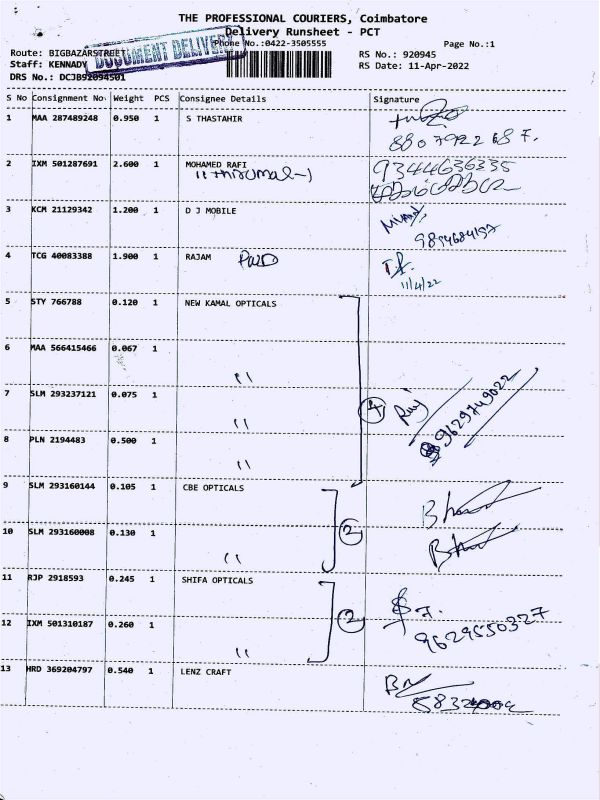 THE PROFESSIONAL COURIERS, Coimbatore
Delivery Runsheet - PCT
Phone No.:0422-3505555 Page No.:1
Route: BIGBAZARSTREET RS No.: 920945
DOCUMENT DELIVERY
Staff: KENNADY RS Date: 11-Apr-2022
DRS No.: DCJB92094501
S No Consignment No. Weight PCS Consignee Details Signature
1 MAA 287489248 0.950 1 S THASTAHIR
2 IXM 501287691 2.600 1 MOHAMED RAFI 9344636335
3 KCM 21129342 1.200 1 D J MOBILE
9894684197
4 TCG 40083388 1.900 1 RAJAM PAID
11/4/22
5 STY 766788 0.120 1 NEW KAMAL OPTICALS
6 MAA 566415466 0.067 1
"
7 SLM 293237121 0.075 1
" 4 Raj 9629749022
8 PLN 2194483 0.500 1
"
9 SLM 293160144 0.105 1 CBE OPTICALS
10 SLM 293160008 0.130 1 2
"
11 RJP 2918593 0.245 1 SHIFA OPTICALS
12 IXM 501310187 0.260 1 2 9629550327
"
13 HRD 369204797 0.540 1 LENZ CRAFT